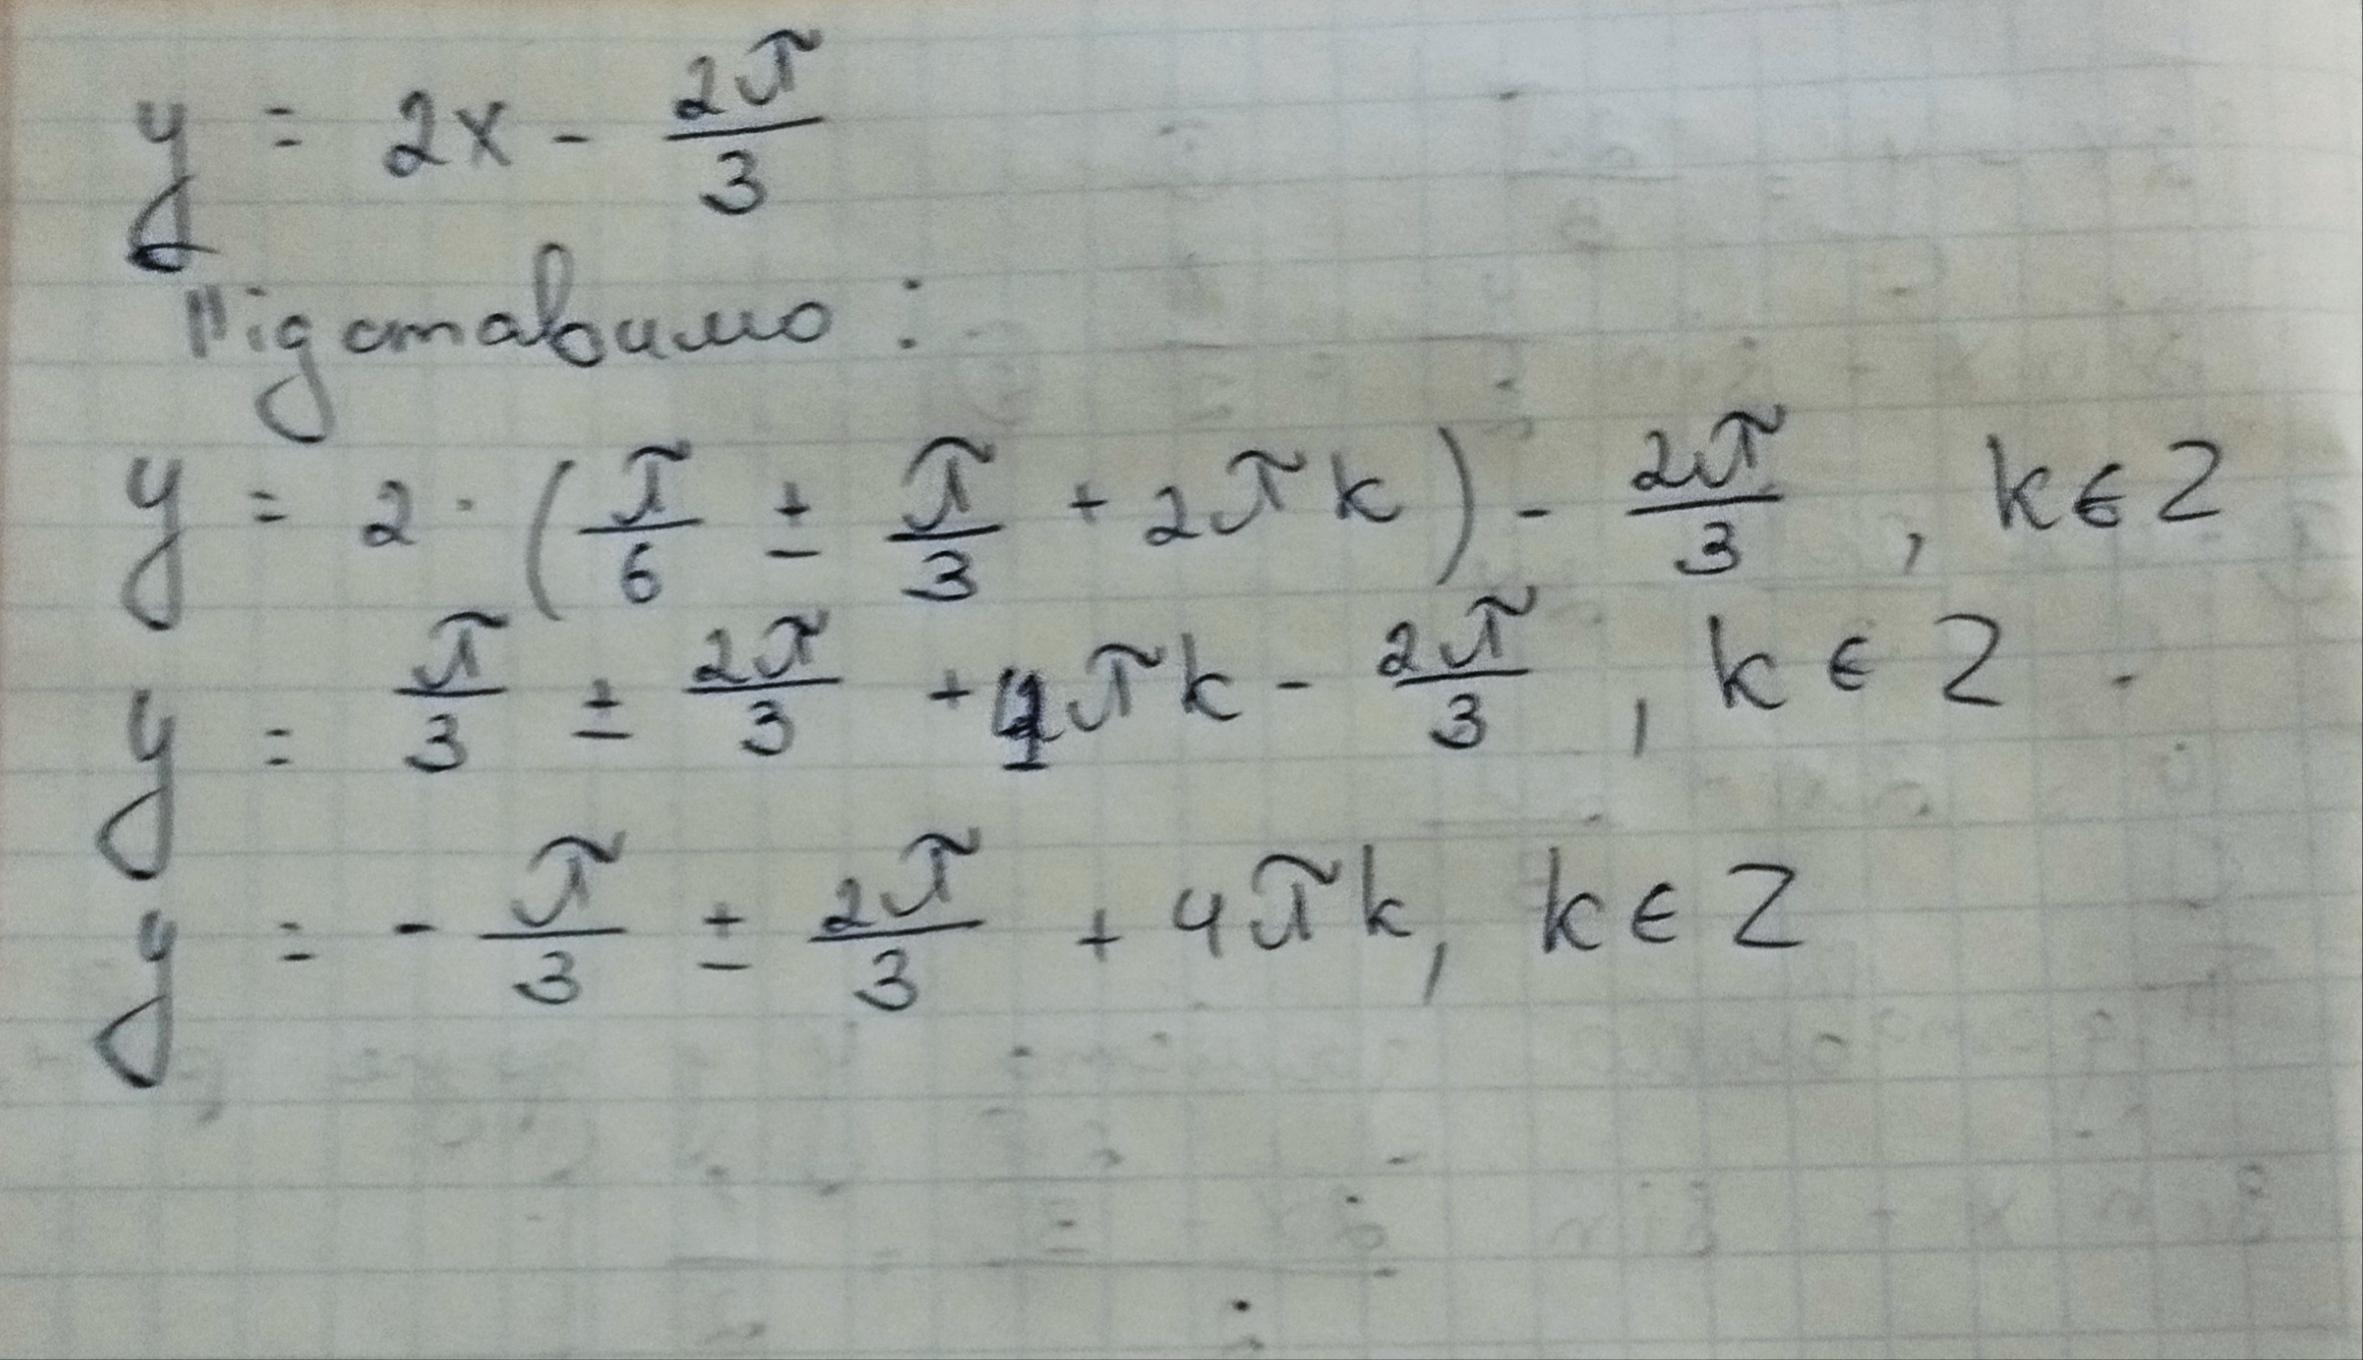 y = 2x - 2π/3
Підставимо:
y = 2 · (π/6 ± π/3 + 2πk) - 2π/3, k ∈ Z
y = π/3 ± 2π/3 + 4πk - 2π/3, k ∈ Z
y = - π/3 ± 2π/3 + 4πk, k ∈ Z